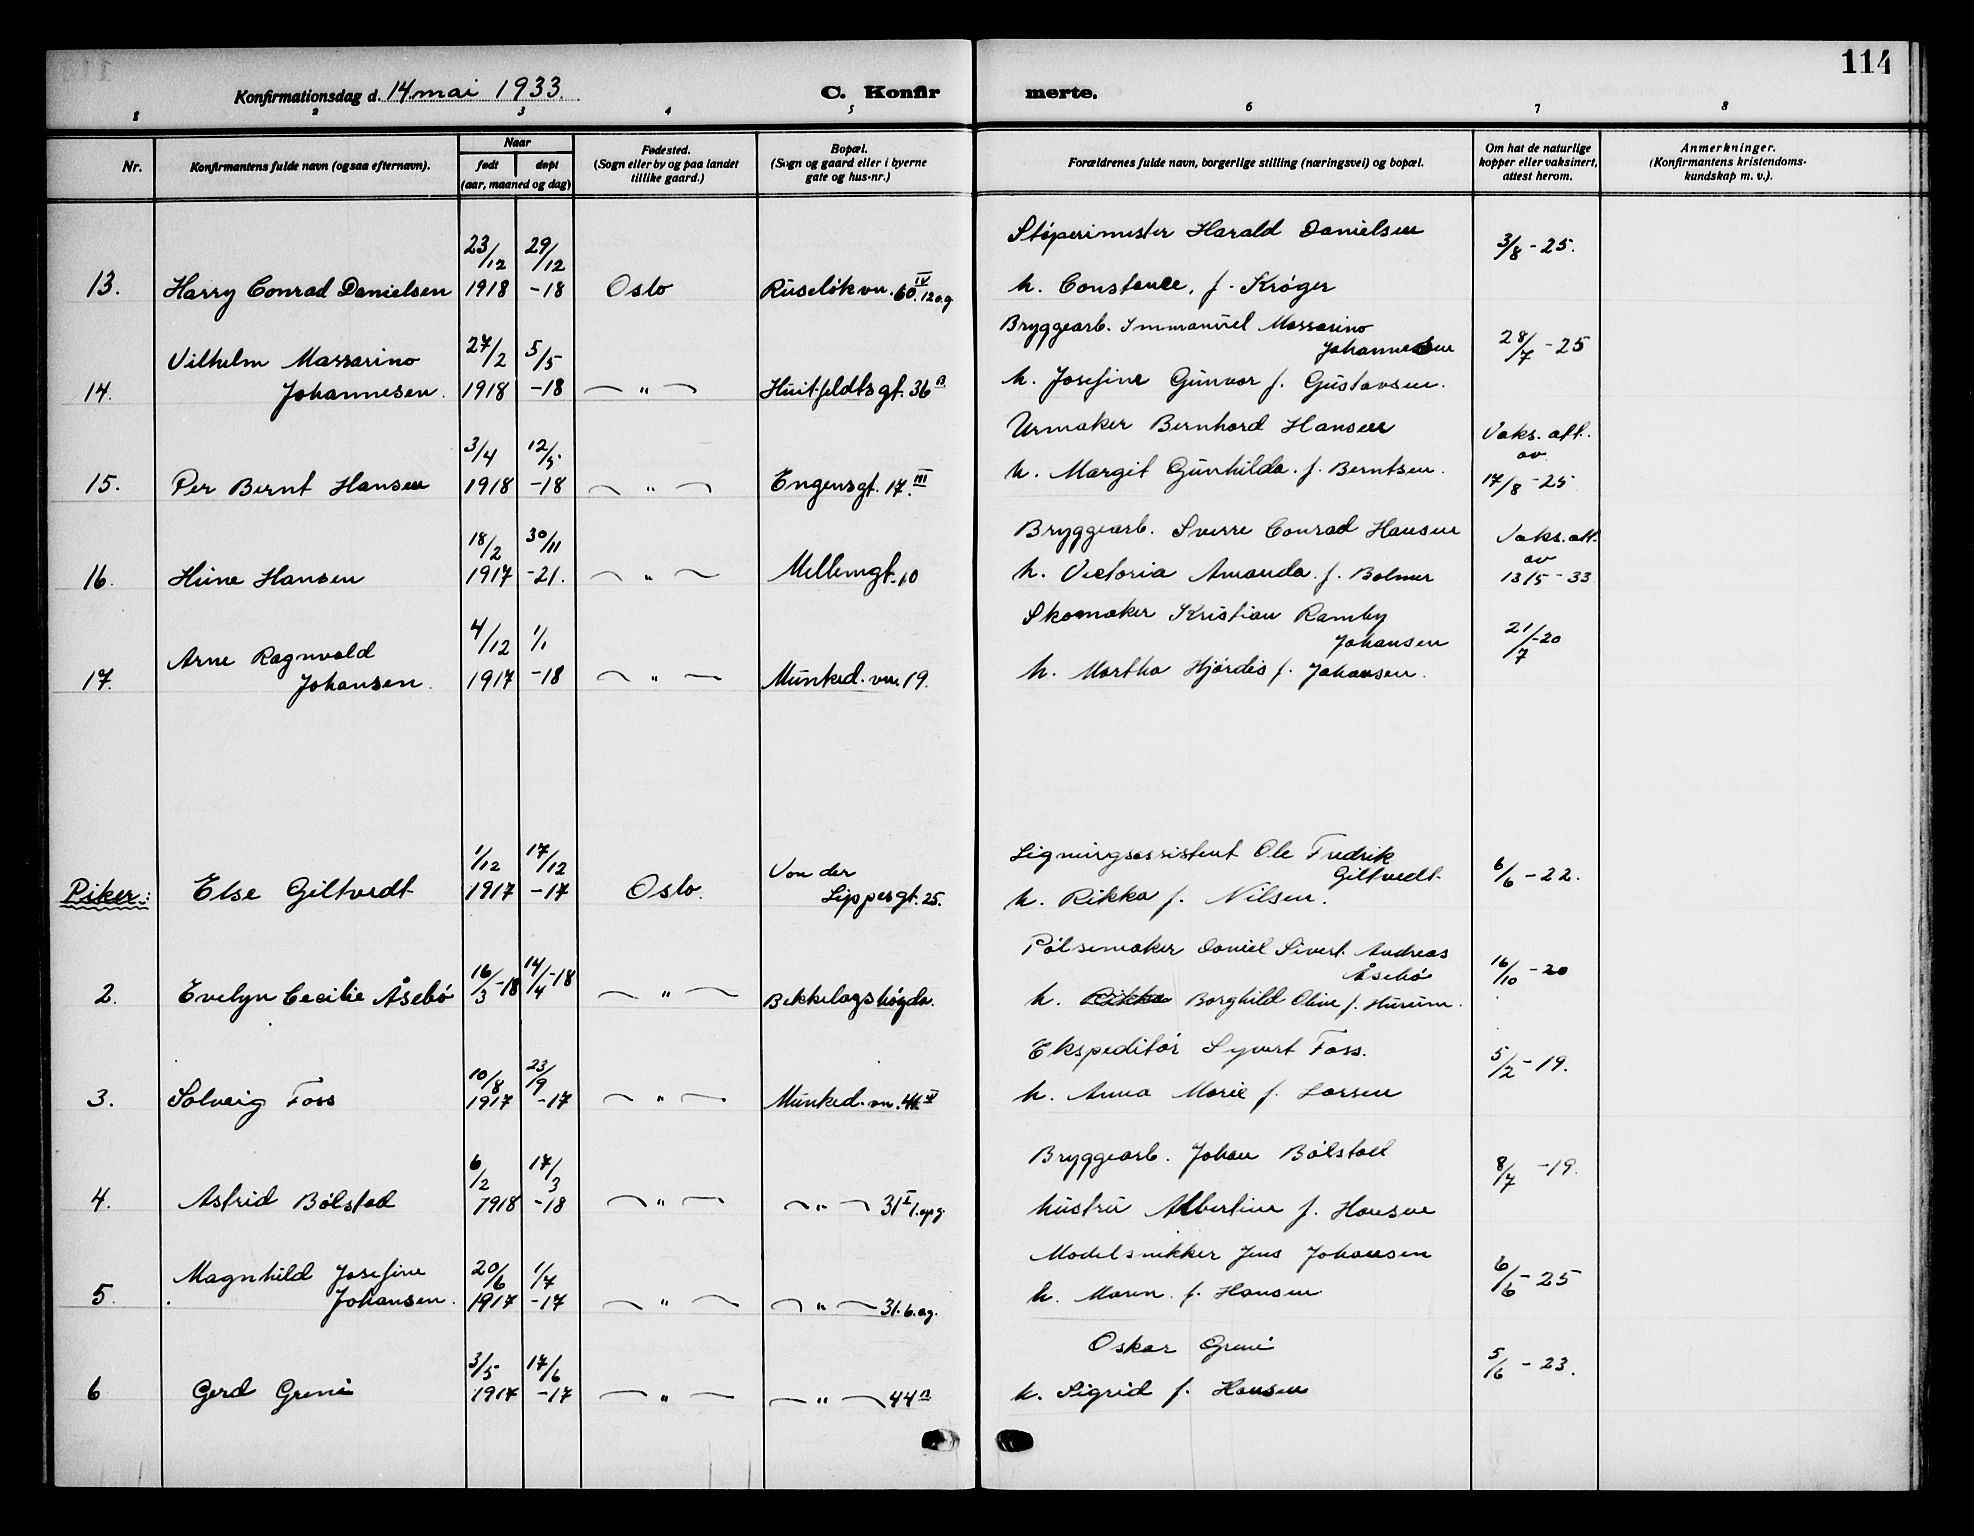 114
Konfirmationsdag d. 14. mai 1933.
C. Konfir
merte.
1 2 3 4 5 6 7 8
Nr.
Konfirmantens fulde navn (ogsaa efternavn).
Naar
født
døpt
(aar, maaned og dag)
Fødested.
(Sogn eller by og paa landet
tillike gaard.)
Bopæl.
(Sogn og gaard eller i byerne
gate og hus-nr.)
Forældrenes fulde navn, borgerlige stilling (næringsvei) og bopæl.
Om hat de naturlige
kopper eller vaksinert,
attest herom.
Anmerkninger.
(Konfirmantens kristendoms-
kundskap m. v.).
23/12 29/12 Støperimester Harald Danielsen 3/8 - 25.
13. Harry Conrad Danielsen 1918 -18 Oslo Ruseløkvn. 60 IV 12 o.g. h. Constance, f. Krøger
Vilhelm Massarino 27/2 5/5 Bryggearb. Immanuel Massarino
Johannesen 28/7 - 25
14. Johannesen. 1918 -18 — " — Huitfeldtsgt. 36 B h. Josefine Gunvor f. Gustavsen.
3/4 12/5 Urmaker Bernhard Hansen Vaks. att.
av
15. Per Bernt Hansen 1918 -18 — " — Engensgt. 17. III h. Margit Gunhilda. f. Berntsen. 17/8 - 25
18/2 30/11 Bryggearb. Sverre Conrad Hansen Vaks. att.
av
16. Hune Hansen 1917 -21. — " — Mellemgt. 10 h. Victoria Amanda. f. Bolmer 13/5 - 33
4/12 1/1 Skomaker Kristian Ramby
Arne Ragnvald Johansen 21/7 -20
17. Johansen. 1917 -18 — " — Munked. vn. 19. h. Martha Hjørdis f. Johansen.
1/12 17/12 Von der Ligningsassistent Ole Fredrik
Giltvedt. 6/6 - 22.
Piker: Else Giltvedt 1917 -17 Oslo. Lippesgt. 25. h. Rikka f. Nilsen.
16/3 -18 14/4 -18 Pølsemaker Daniel Sivert Andreas
Åsebø 16/10 - 20
2. Evelyn Cecilie Åsebø — " — Bekkelagshøgda. h. Rikka Borghild Oline f. Hurum.
10/8 23/9 Ekspeditør Syvert Foss. 5/2 - 19.
3. Solveig Foss 1917 -17 — " — Munked. vn. 44. V h. Anna Marie f. Larsen
6/2 17/3 Bryggearb. Johan Bølstad 8/7 - 19.
4. Astrid Bølstad 1918 -18 — " — — " — 31 I 1. opg. hustru Albertine f. Hansen
Magnhild Josefine 20/6 1/7 Modelsnikker Jens Johansen 6/6 - 25
5. Johansen. 1917 -17 — " — — " — 31. 6. og. h. Maren f. Hansen
3/5 17/6 Oskar Greni 5/6 - 23.
6 Gerd Greni 1917 -17 — " — — " — 44 B h. Sigrid f. Hansen